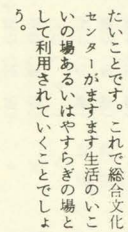 たいことです。これで総合文化
センターがますます生活のいこ
いの場あるいはやすらぎの場と
して利用されていくことでしょ
う。